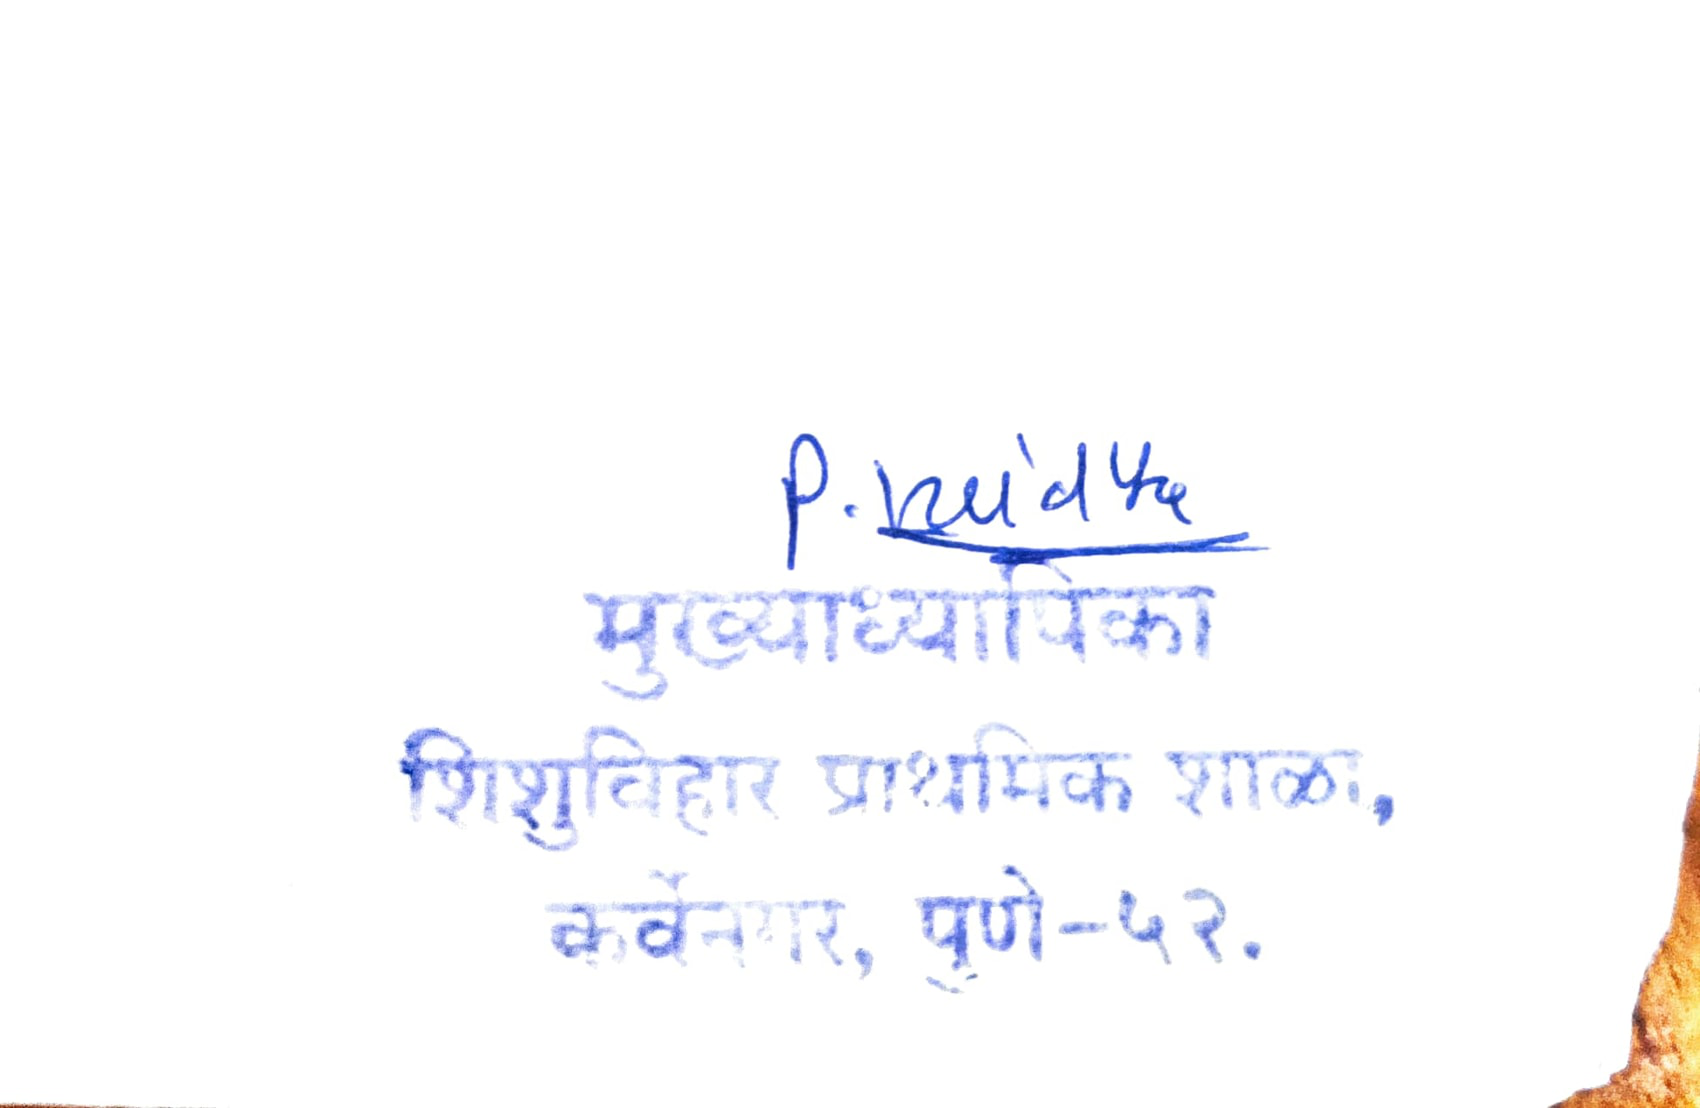 मुख्याध्यापिका
शिशुविहार प्राथमिक शाळा,
कर्वेनगर, पुणे-५२.